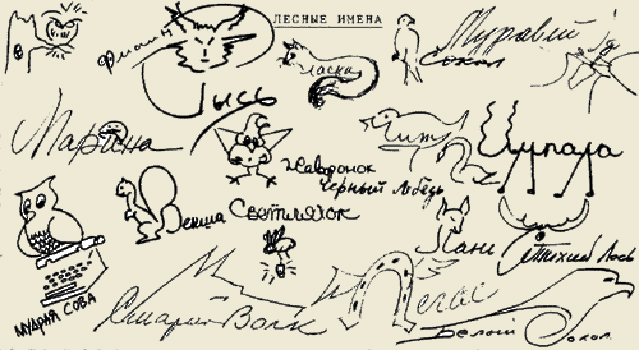 ЛЕСНЫЕ ИМЕНА
Филин
Рысь
Ласка
Сокол
Муравей
Марина
Чиж
Цикада
Жаворонок
Черный Лебедь
Векша
Светлячок
Лань
Тихий Лось
МУДРАЯ СОВА
Старый Волк
Пегас
Белый Сокол